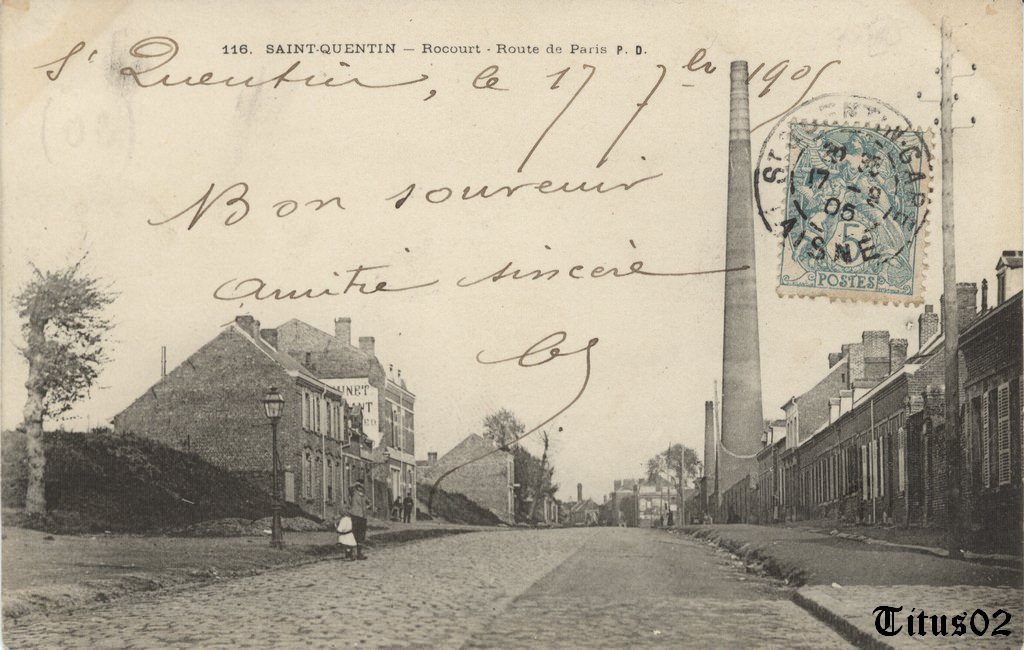 116. SAINT-QUENTIN — Rocourt - Route de Paris P. D.
St Quentin, le 17 7bre 1905
Bon souvenir
amitié sincère
AISNE
17
05
5
POSTES
Titus02